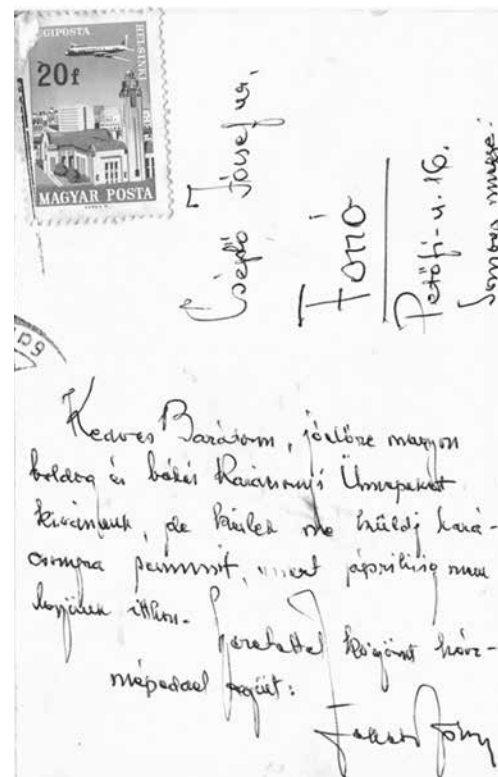 LÉGIPOSTA
HELSINKI
20f
MAGYAR POSTA
Cséplő József úr,
Fonó
Petőfi-u. 16.
Somogy megye.
Kedves Barátom, jóelőre nagyon
boldog és békés Karácsonyi Ünnepeket
kívánunk, de kérlek ne küldj kará-
csonyra, mert áprilisig nem
leszünk itthon.
Szeretettel köszönt ház-
népeddel együtt: